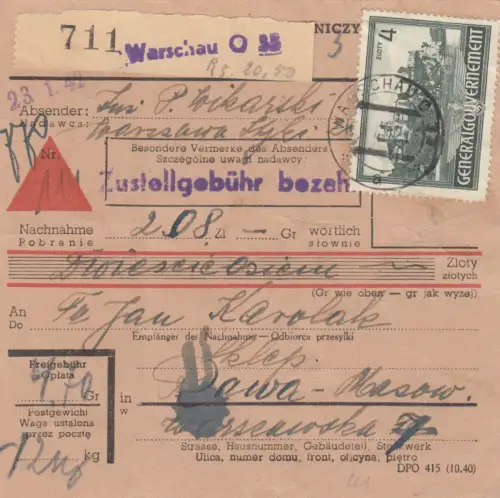 711 Warschau O 35
NICZY
5
Rs. 20,50
23. 1. 42
4 ZŁOTY
GENERALGOUVERNEMENT
WARSCHAU
Absender:
Nadawca: P. Wikarski
Warszawa
Nr.
111
Besondere Vermerke des Absenders
Szczególne uwagi nadawcy:
Zustellgebühr bezah
Nachnahme 208 Zl — Gr wörtlich
Pobranie słownie
Dwieścieosiem Zloty
złotych
(Gr wie oben — gr jak wyżej)
An Fa Jan Karolak
Do
Empfänger der Nachnahme — Odbiorca przesyłki
Sklep
Freigebühr
Opłata
Gr
in Rawa-Masow.
w
Postgewicht
Waga ustalona
przez pocztę
kg
Warszawska 7
Strasse, Hausnummer, Gebäudeteil, Stockwerk
Ulica, numer domu, front, oficyna, piętro
DPO 415 (10.40)